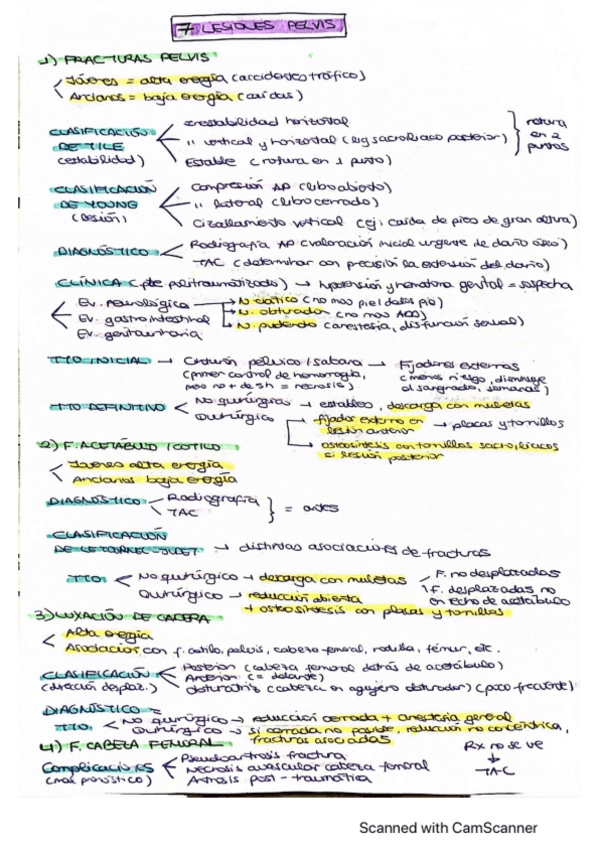 7 LESIONES PELVIS
1) FRACTURAS PELVIS
Jóvenes = alta energía (accidentes tráfico)
Ancianos = baja energía (caídas)
CLASIFICACIÓN DE TILE (estabilidad)
inestabilidad horizontal
" vertical y horizontal (lig sacroilíaco posterior)
rotura en 2 puntos
Estable (rotura en 1 punto)
CLASIFICACIÓN DE YOUNG (lesión)
Compresión AP (libro abierto)
" lateral (libro cerrado)
Cizallamiento vertical (ej: caída de pico de gran altura)
DIAGNÓSTICO
Radiografía AP (valoración inicial urgente de daño óseo)
TAC (determinar con precisión la extensión del daño)
CLÍNICA (pte politraumatizado) → hipotensión y hematoma genital = sospecha
Ev. neurológica
N. ciático (no mov pie/dedos pie)
Ev. gastrointestinal
N. obturador (no mov ADD)
Ev. genitourinaria
N. pudendo (anestesia, disfunción sexual)
TTO INICIAL → Cinturón pélvico / sábana → Fijadores externos
(primer control de hemorragia, no + de 5h = necrosis)
(menos riesgo, disminuye el sangrado, semanas)
TTO DEFINITIVO
No quirúrgico → estables, descarga con muletas
Quirúrgico
fijador externo en lesión anterior → placas y tornillos
osteosíntesis con tornillos sacroilíacos si lesión posterior
2) F. ACETÁBULO / COTILO
Jóvenes alta energía
Ancianos baja energía
DIAGNÓSTICO
Radiografía
TAC
= antes
CLASIFICACIÓN DE LETOURNEL-JUDET → distintas asociaciones de fracturas
TTO
No quirúrgico → descarga con muletas
F. no desplazadas
F. desplazadas no en techo de acetábulo
Quirúrgico → reducción abierta + osteosíntesis con placas y tornillos
3) LUXACIÓN DE CADERA
Alta energía
Asociación con f. cotilo, pelvis, cabeza femoral, rodilla, fémur, etc.
CLASIFICACIÓN (dirección desplaz.)
Posterior (cabeza femoral detrás de acetábulo)
Anterior (= delante)
Obturatriz (cabeza en agujero obturador) (poco frecuente)
DIAGNÓSTICO =
TTO.
No quirúrgico → reducción cerrada + anestesia general
Quirúrgico → si cerrada no posible, reducción no concéntrica, fracturas asociadas
4) F. CABEZA FEMORAL
Rx no se ve
↓
TAC
Complicaciones (mal pronóstico)
Pseudoartrosis fractura
Necrosis avascular cabeza femoral
Artrosis post-traumática
Scanned with CamScanner